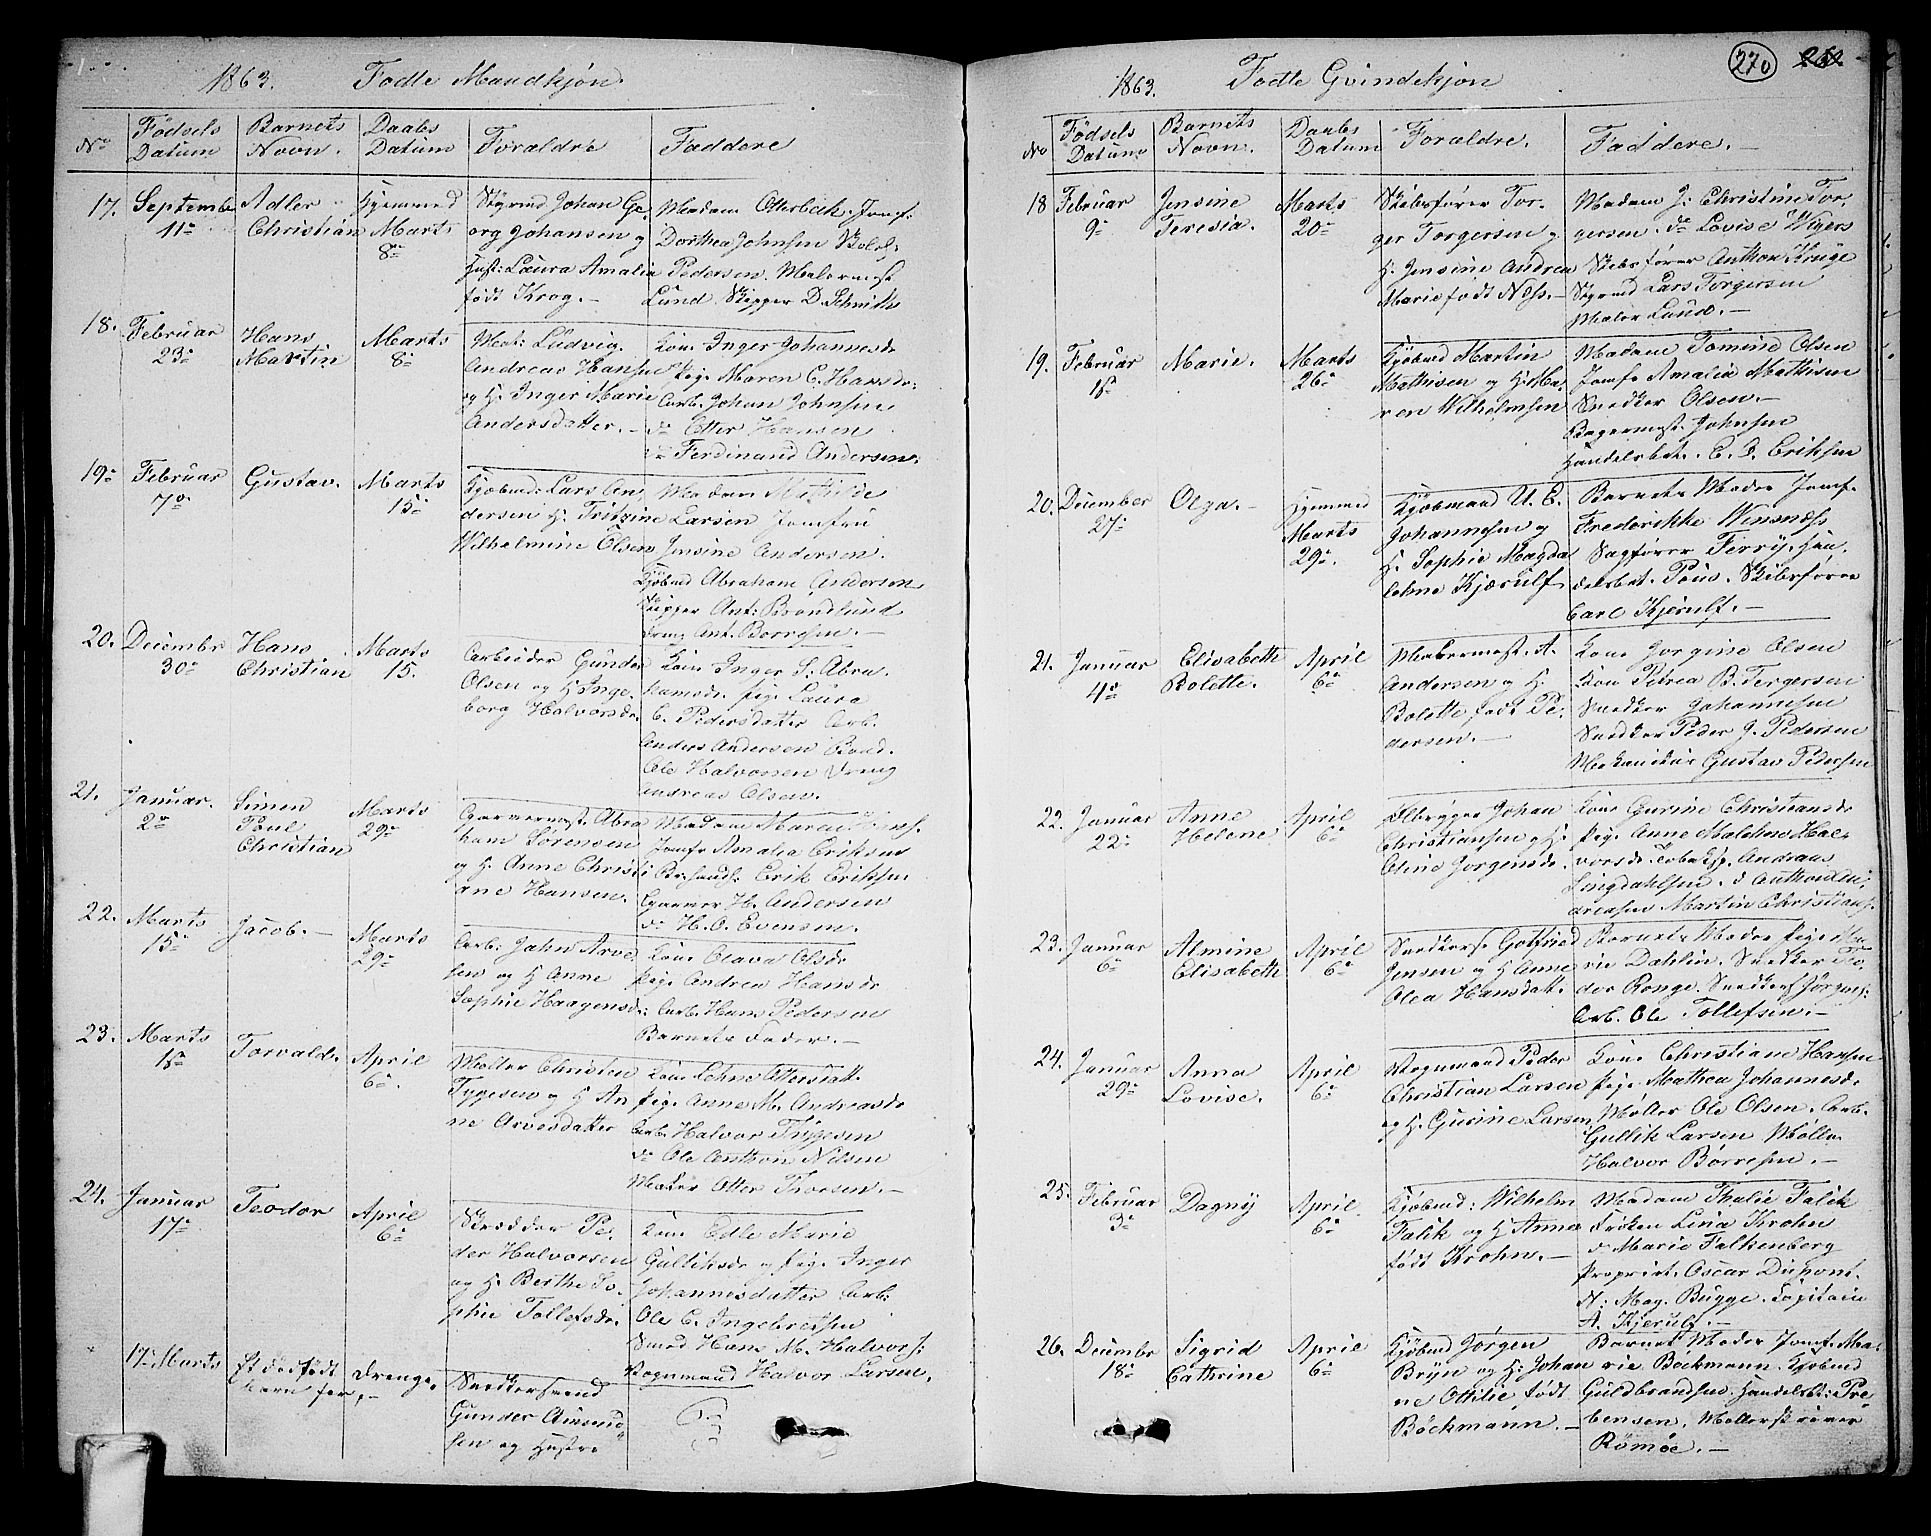 1863. Fødte Mandkjøn
No
Fødsels Datum
Barnets Navn.
Daabs Datum
Forældre
Faddere
17. September 11te
Adler Christian
Hjemmed Marts 8de
Styrmd Johan Ge-
org Johansen og
Hust: Laura Amalia
født Krog. -
Madam Otterbeck. Jomf:
Dorthea Johnsen
Pedersen. Malermest
Lund. Skipper D. Schmith
18. Februar 23de
Hans Martin
Marts 8de
Mat: Ludvig
Andreas Hansen
og H. Inger Marie
Andersdatter. -
Kone Inger Johannesdr
Pige Maren C. Hansdr
Arb. Johan Johnsen
do Otter Hansen
do Ferdinand Andersen.
19. Februar 7de
Gustav.
Marts 15de
Kjøbmd: Lars An-
dersen H. Fritzine
Wilhelmine Olsen
Madam Mathilde
Larsen Jomfru
Jensine Andersen.
Kjøbmd Abraham Andersen
Skipper Ant: Brandlund
Dreng Ant. Borresen. -
20. Decembr 30te
Hans Christian
Marts 15.
Arbeider Gunder
Olsen og H. Inge-
borg Halvorsdr.
Kone Inger S. Abra-
hamsdr. Pige Laura
C. Pedersdatter Arb.
Anders Andersen
Ole Halvorsen Dreng
Andreas Olsen.
21. Januar. 2de
Simen Poul Christian
Marts 29de
Garvermest. Abra
ham Sørensen
og H. Anne Christi
ane Hansen.
Madam Maren
Jomfr Amalia Eriksen
Erik Eriksen
Garver H. Andersen
do H. O. Evensen.
22. Marts 15de
Jacob. -
Marts 29de
Arb: Jahn Arve-
sen og H Anne
Sophie Haagensdr:
Kone Olava Olsdr
Pige Andrea Hansdr
Arb. Hans Pedersen
Barnets Fader. -
23. Marts 1ste
Torvald.
April 6te.
Møller Christen
Tygesen og H An
ne Arvesdatter
Kone Lehne Ottersdatt.
Pige Anne M. Andreasdr
Arb. Halvor Tygesen
do Ole Anthon Nilsen
Otter Thorsen. -
24. Januar 17de
Teodor
April 6te
Skrædder Pe-
der Halvorsen
og H. Berthe So-
phie Tollefsdr.
Kone Edle Marie
Gulliksdr og Pige Inger
Johannesdatter Arb:
Ole C. Ingebretsen
Smed Hans M. Halvors:
Vognmand Halvor Larsen.
17de Marts
Et dødfødt Barn før,
Drenge. -
Snedkersvend
Gunder Amund-
sen og Hustru
270
1863. Fødte Qvindekjøn
No
Fødsels Datum
Barnets Navn.
Daabs Datum
Forældre.
Faddere. -
18 Februar 9de
Jensine Teresia.
Marts 20de
Skibsfører Tor-
ger Torgersen og
H. Jensine Andrea
Marie født Næss. -
Madam J: Christine Tor-
gersen. do Lovise Wigers
Skibsfører Anthon Krüge
Styrmd Lars Torgersen
Maler Lund. -
19. Februar 1ste
Marie.
Marts 26de
Kjøbmd Martin
Mathisen og H. Ma-
ren Wilhelmsen
Madam Tomine Olsen
Jomfr Amalia Mathisen
Snedker Olsen. -
Bagermest. Johnsen
Handelsbet. E. O. Eriksen
20. December 27de
Olga. -
Hjemmed Marts 29de
Kjøbmand U. E.
Johannesen og
H. Sophie Magda
lehne Kjærulf
Barnets Moder Jomf.
Frederikke Winsnæss
Sagfører Ferry. Han-
delsbet. Poüs. Skibsfører
Carl Kjerulf. -
21. Januar 4de
Elisabeth Bolette.
April 6te
Malermest. A.
Andersen og H.
Bolette født Pe-
dersen. -
Kone Jorgine Olsen
Kone Petrea B. Tergersen
Snedker Johannesen
Snedker Peder J. Pedersen
Mekanikus Gustav Pedersen
22. Januar 22de
Anne Helene
April 6te
Ølbrygger Johan
Christiansen og H.
Eline Jorgensdr.
Kone Gurine Christiansdr
Pige Anne Malehne Hal-
vorsdr Tobaksp. Andreas
Lingdahlsen. d Anthon An-
dreasen Martin Christians.
23. Januar 6te
Almine Elisabeth
April 6te
Snedkers Gotfried
Jensen og H Anne
Olea Hansdatt.
Barnets Moder Pige Ma-
rie Dahlin. Snedker To-
der Ronge. Snedkers Jörgens:
Arb. Ole Tollefsen. -
24. Januar 29de
Anna Lovise.
April 6te
Vognmand Peder
Christian Larsen
og H. Gurine Larsen
Kone Christiane Hansen
Pige Mathea Johannesdr
Møller Ole Olsen. Arb.
Gullik Larsen Møller
Halvor Børresen. -
25. Februar 3de
Dagny
April 6te
Kjøbmd: Wilhelm
Falik og H Anna
født Krohn. -
Madam Thalie Falik
Frøken Lina Krohn
d. Marie Falkenberg
Propriet. Oscar Dupont.
N. Mag. Bugge. Kapitain
A. Kjerulf. -
26. Decembr 18de
Sigrid Cathrine
April 6te
Kjøbmd Jørgen
Bryn og H: Johan
ne Ottilie, født
Böckmann. -
Barnets Moder Jomf. Ma-
rie Bøckmann. Kjøbmd
Guldbrandsen. Handelsbt: Pre-
bensen. Mellerskriver
Römöe. -